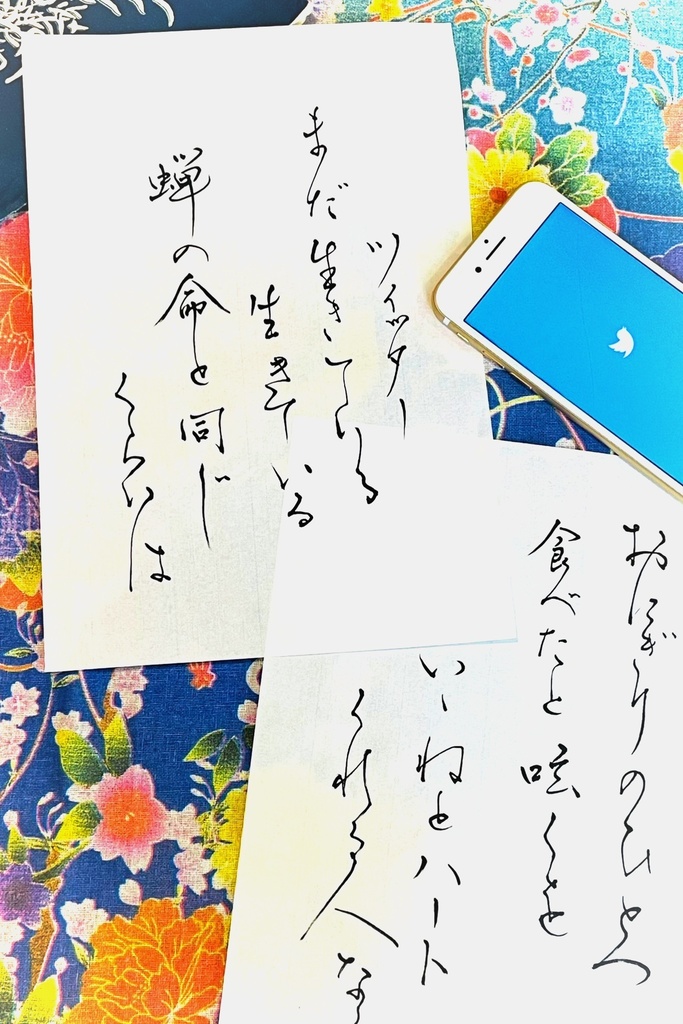 ツイッター
まだ生きている
生きている
蝉の命と同じ
くらいは
おにぎりのひとつ
食べたと呟くを
いいねとハート
くれる人な